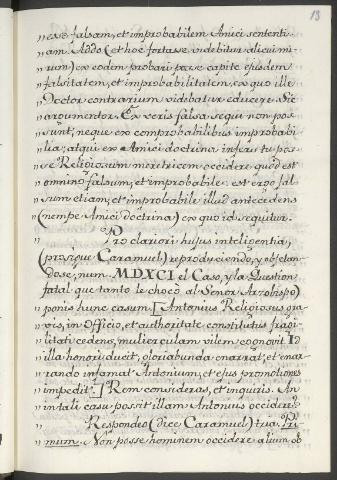 13
„ esse falsam, et improbabilem Amici sententi
„ am. Addo (et hoc fortasse videbitur alicui mi-
„ rum) ex eodem probari posse capite ejusdem
„ falsitatem, et improbabilitatem, ex quo ille
„ Doctor contrarium videbatur educere. Sic
„ argumentor. Ex veris falsa sequi non pos-
„ sunt, neque ex comprobabilibus improbabi
„ lia; atqui ex Amici doctrina infertur pos-
„ se Religiosum meretricem occidere quod est
„ omnino falsum, et improbabile: est ergo fal
„ sum etiam, et improbabile illud antecedens
„ (nempe Amici doctrina) ex quo id sequitur.
„ Pro clariori hujus inteligentia,
(prosigue Caramuel) reproduciendo, y
dose, num. MDXCI el Caso, y la Question
fatal que tanto le chocò al Señor Arzobispo)
„ ponis hunc casum. [Antonius Religiosus qua
„ vis, in Officio, et authoritate constitutus fragi
„ litati cedens, mulierculam vilem cognovit. Id
„ illa honori ducit, gloriabunda enarrat, et enar
„ rando infamat Antonium, et ejus promotiones
„ impedit.] Rem consideras, et inquiris. An
„ in tali casu possit illam Antonius occidere?
„ Respondeo (dice Caramuel) tua. Pri-
„ mum. Non posse hominem occidere alium ob